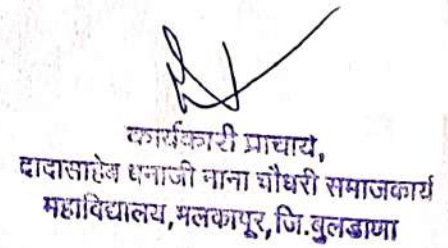 कार्यकारी प्राचार्य,
दादासाहेब धनाजी नाना चौधरी समाजकार्य
महाविद्यालय, मलकापूर, जि. बुलडाणा